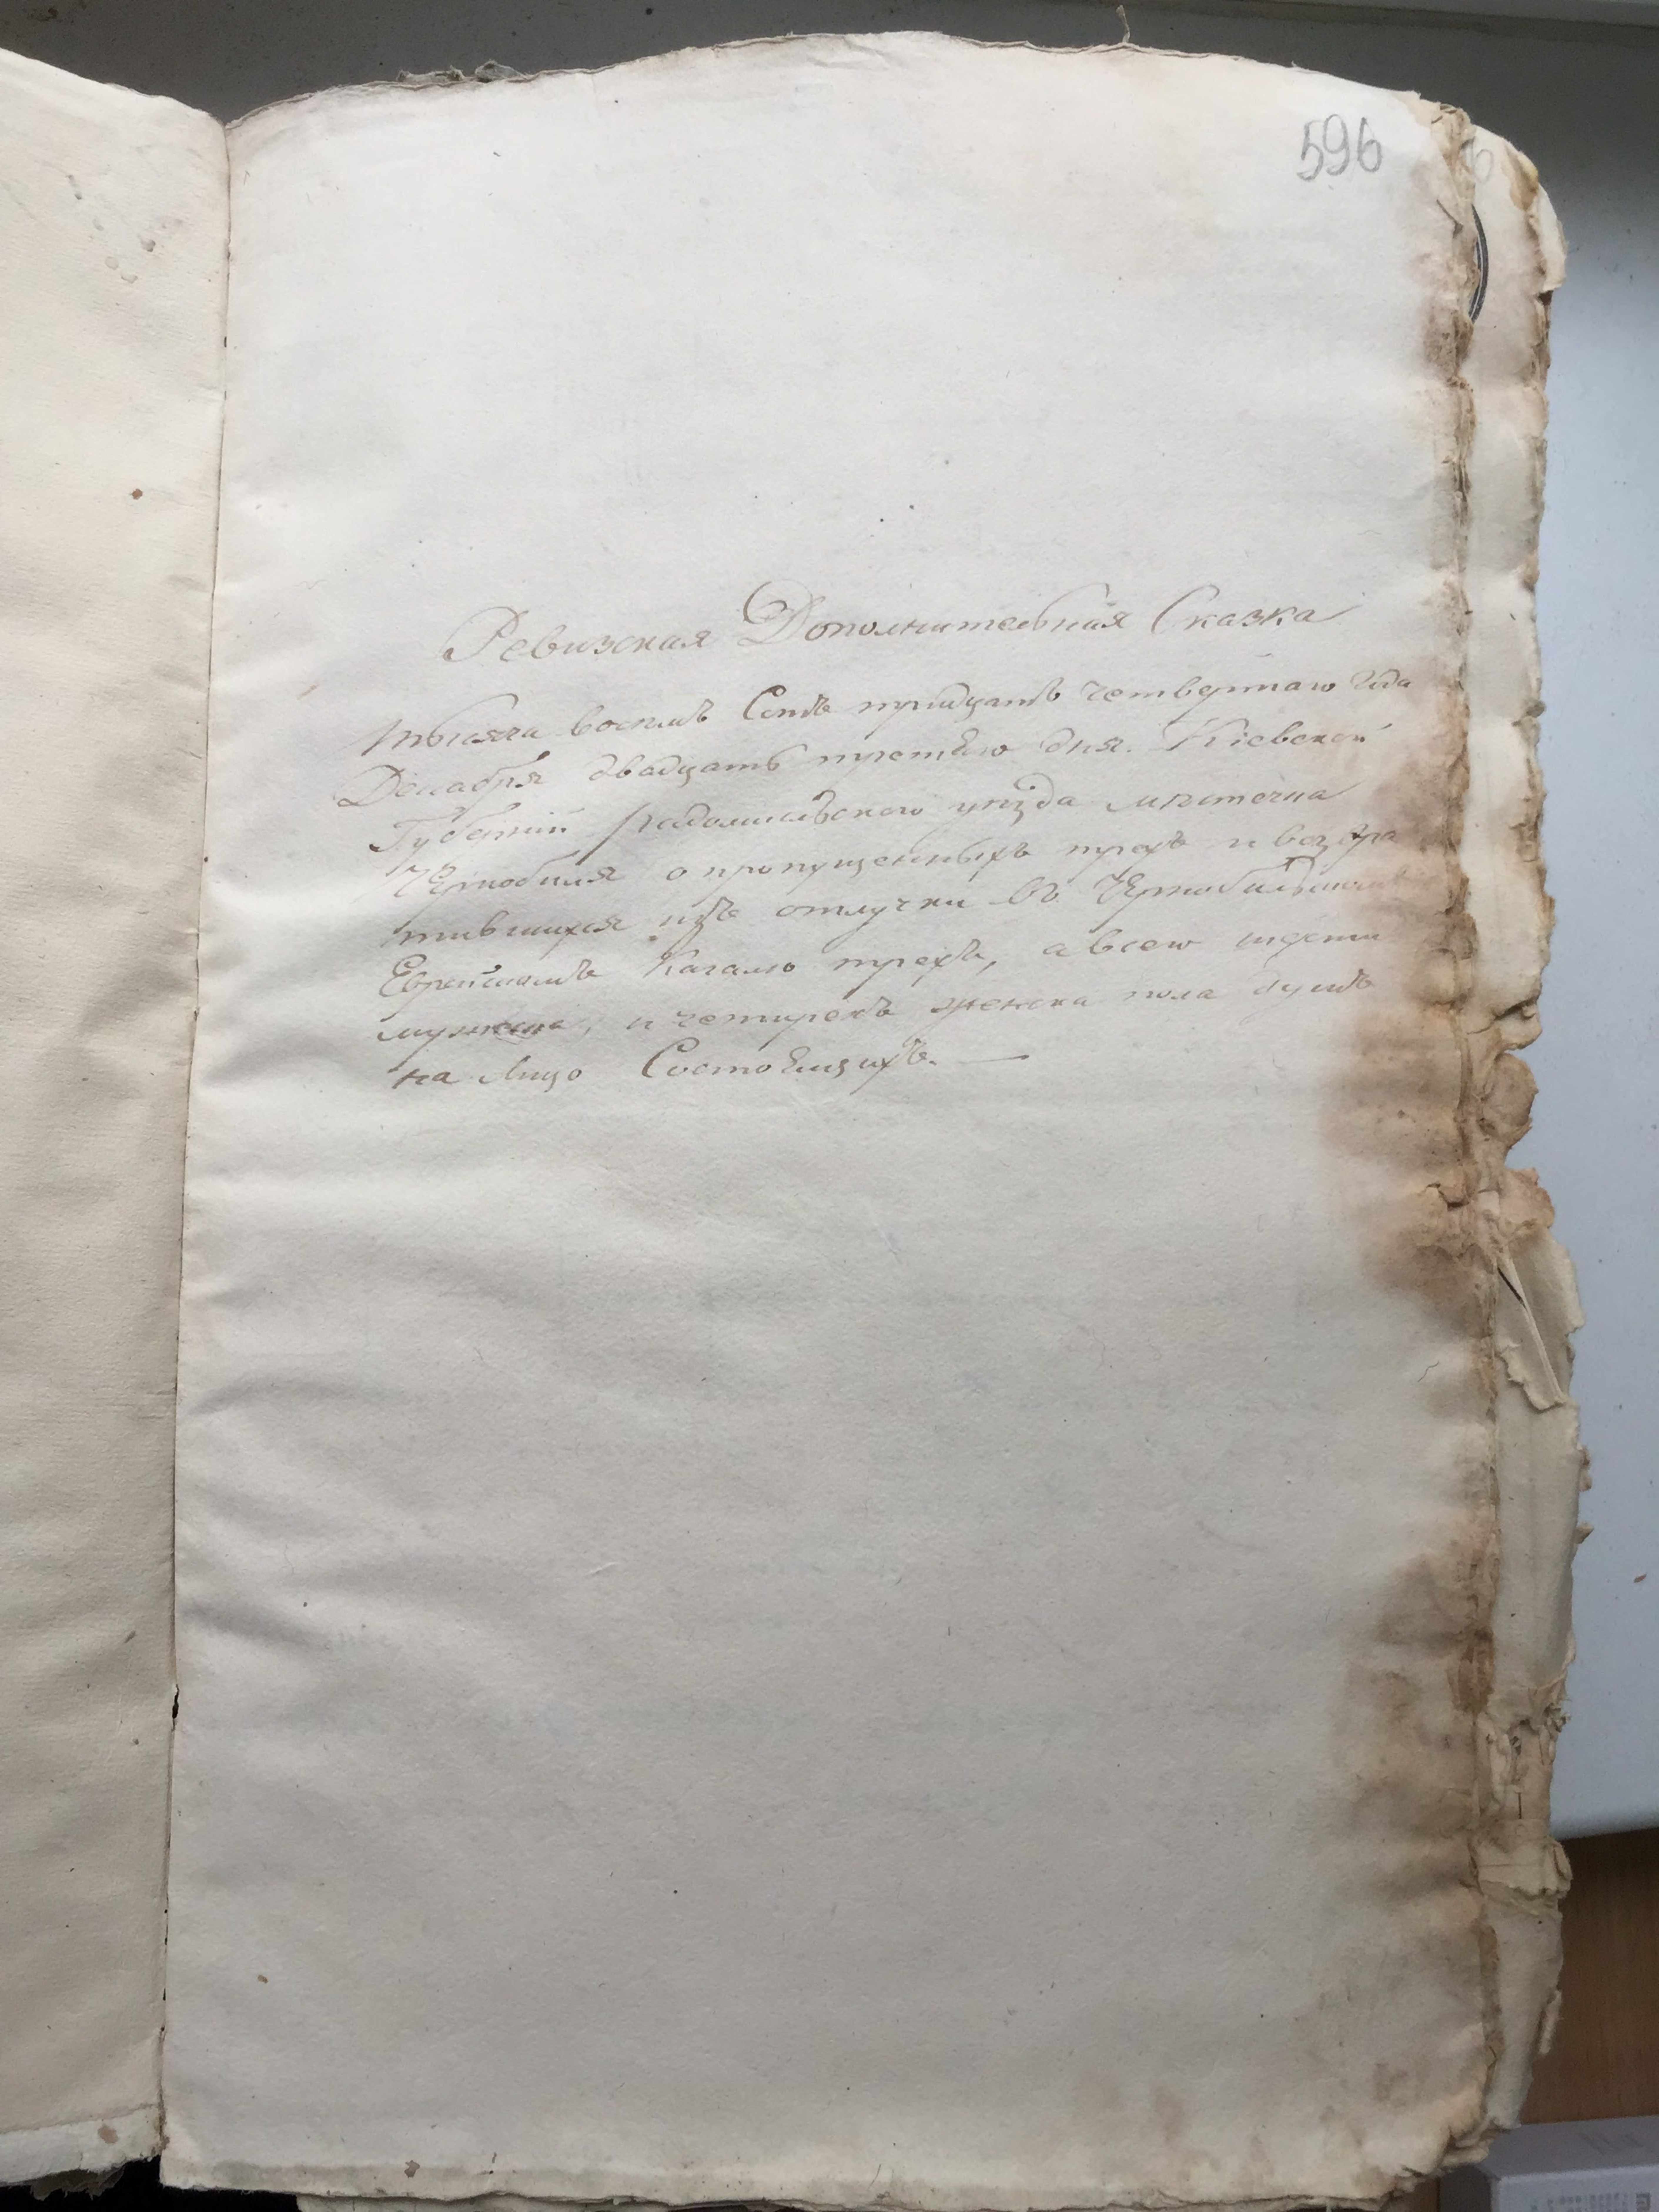 596
Ревизская Дополнительная Сказка
тысяча восемь Сотъ тридцать четвертаго года
Декабря двадцать третьяго дня. Кіевской
Губерніи радомисльского уѣзда мѣстечка
Чернобиля о пропущенныхъ трехъ и возвра
тившихся изъ отлучки въ Чернобильском
Еврейскомъ Кагалю трехъ, а всего шести
мужеска, и четирехъ женска пола душъ
на лицо Состоящихъ. —